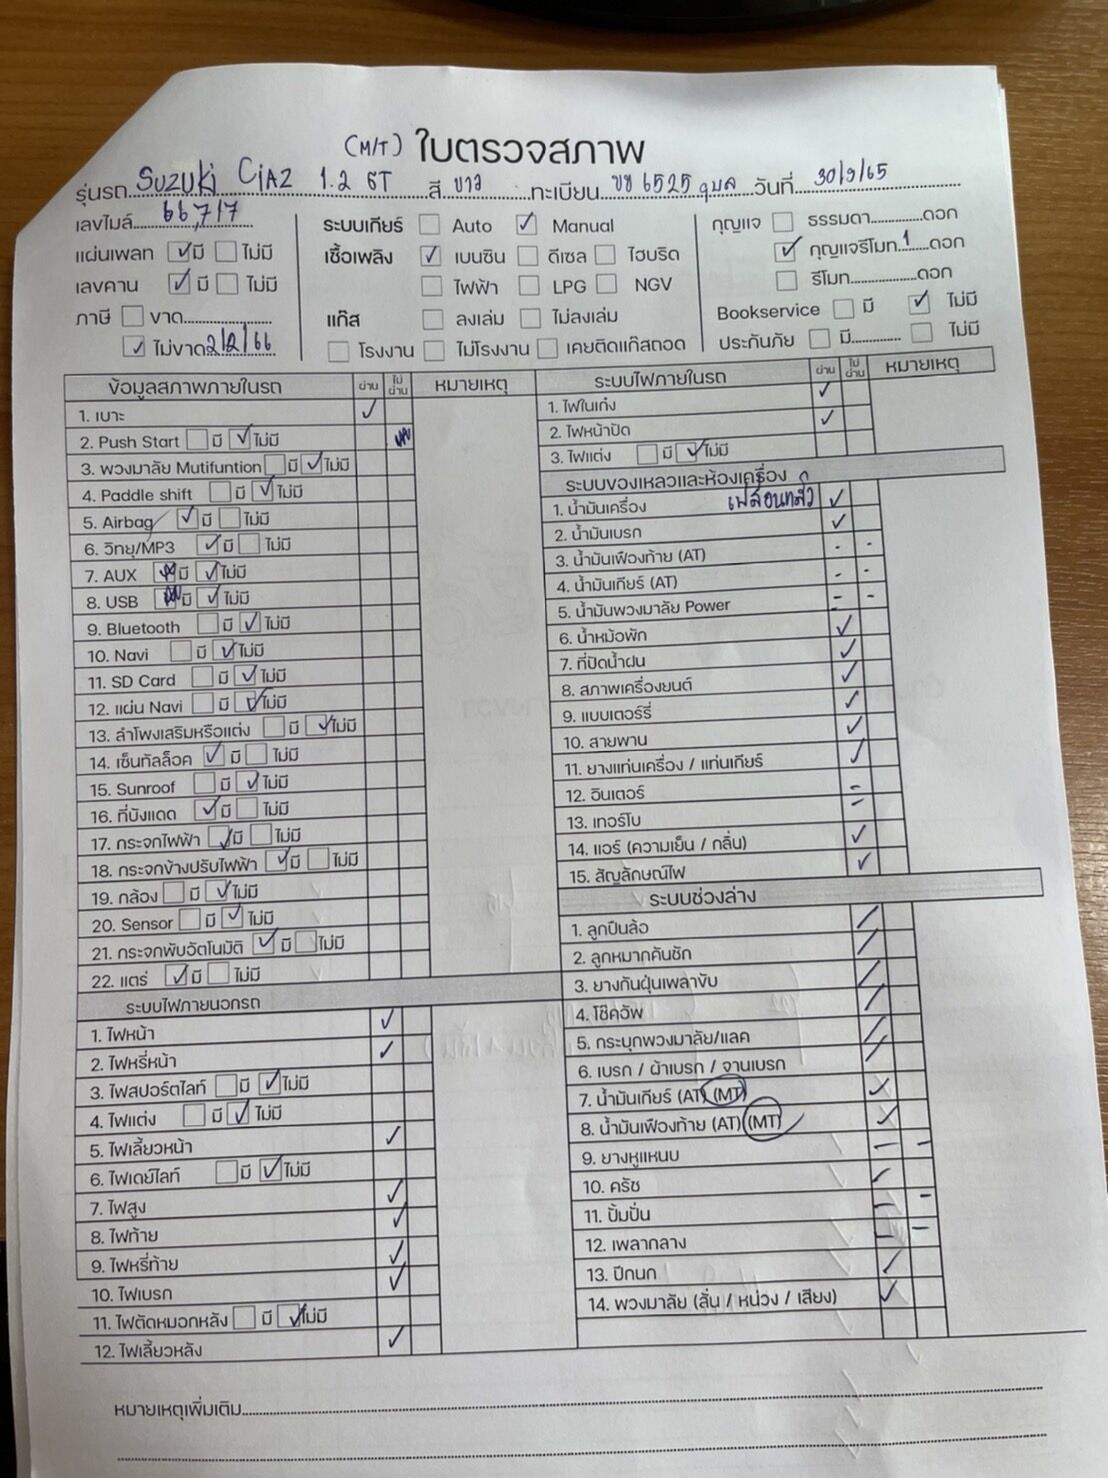 (M/T) ใบตรวจสภาพ
รุ่นรถ Suzuki Ciaz 1.2 GT สี ขาว ทะเบียน ขข 6525 อุบล วันที่ 30/9/65
เลขไมล์ 66,717 ระบบเกียร์ Auto ✓ Manual กุญแจ ธรรมดา ดอก
แผ่นเพลท ✓ มี ไม่มี เชื้อเพลิง ✓ เบนซิน ดีเซล ไฮบริด ✓ กุญแจรีโมท 1 ดอก
เลขคาน ✓ มี ไม่มี ไฟฟ้า LPG NGV รีโมท ดอก
ภาษี ขาด แก๊ส ลงเล่ม ไม่ลงเล่ม Bookservice มี ✓ ไม่มี
✓ ไม่ขาด 2/2/66 โรงงาน ไม่โรงงาน เคยติดแก๊สถอด ประกันภัย มี ไม่มี
ข้อมูลสภาพภายในรถ ผ่าน ไม่ผ่าน หมายเหตุ
1. เบาะ ✓
2. Push Start มี ✓ ไม่มี
3. พวงมาลัย Mutifuntion มี ✓ ไม่มี
4. Paddle shift มี ✓ ไม่มี
5. Airbag ✓ มี ไม่มี
6. วิทยุ/MP3 ✓ มี ไม่มี
7. AUX มี ✓ ไม่มี
8. USB มี ✓ ไม่มี
9. Bluetooth มี ✓ ไม่มี
10. Navi มี ✓ ไม่มี
11. SD Card มี ✓ ไม่มี
12. แผ่น Navi มี ✓ ไม่มี
13. ลำโพงเสริมหรือแต่ง มี ✓ ไม่มี
14. เซ็นทัลล็อค ✓ มี ไม่มี
15. Sunroof มี ✓ ไม่มี
16. ที่บังแดด ✓ มี ไม่มี
17. กระจกไฟฟ้า ✓ มี ไม่มี
18. กระจกข้างปรับไฟฟ้า ✓ มี ไม่มี
19. กล้อง มี ✓ ไม่มี
20. Sensor มี ✓ ไม่มี
21. กระจกพับอัตโนมัติ ✓ มี ไม่มี
22. แตร่ ✓ มี ไม่มี
ระบบไฟภายนอกรถ
1. ไฟหน้า ✓
2. ไฟหรี่หน้า ✓
3. ไฟสปอร์ตไลท์ มี ✓ ไม่มี
4. ไฟแต่ง มี ✓ ไม่มี
5. ไฟเลี้ยวหน้า ✓
6. ไฟเดย์ไลท์ มี ✓ ไม่มี
7. ไฟสูง ✓
8. ไฟท้าย ✓
9. ไฟหรี่ท้าย ✓
10. ไฟเบรก ✓
11. ไฟตัดหมอกหลัง มี ✓ ไม่มี
12. ไฟเลี้ยวหลัง ✓
ระบบไฟภายในรถ ผ่าน ไม่ผ่าน หมายเหตุ
1. ไฟในเก๋ง ✓
2. ไฟหน้าปัด ✓
3. ไฟแต่ง มี ✓ ไม่มี
ระบบของเหลวและห้องเครื่อง
1. น้ำมันเครื่อง ✓
2. น้ำมันเบรก ✓
3. น้ำมันเฟืองท้าย (AT) - -
4. น้ำมันเกียร์ (AT) - -
5. น้ำมันพวงมาลัย Power - -
6. น้ำหม้อพัก ✓
7. ที่ปัดน้ำฝน ✓
8. สภาพเครื่องยนต์ ✓
9. แบบเตอร์รี่ ✓
10. สายพาน ✓
11. ยางแท่นเครื่อง / แท่นเกียร์ ✓
12. อินเตอร์ -
13. เทอร์โบ -
14. แอร์ (ความเย็น / กลิ่น) ✓
15. สัญลักษณ์ไฟ ✓
ระบบช่วงล่าง
1. ลูกปืนล้อ ✓
2. ลูกหมากคันชัก ✓
3. ยางกันฝุ่นเพลาขับ ✓
4. โช๊คอัพ ✓
5. กระบุกพวงมาลัย/แลค ✓
6. เบรก / ผ้าเบรก / จานเบรก ✓
7. น้ำมันเกียร์ (AT) (MT) ✓
8. น้ำมันเฟืองท้าย (AT) (MT) ✓
9. ยางหูแหนบ - -
10. ครัช ✓
11. ปั้มปั่น - -
12. เพลากลาง - -
13. ปีกนก ✓
14. พวงมาลัย (สั่น / หน่วง / เสียง) ✓
หมายเหตุเพิ่มเติม